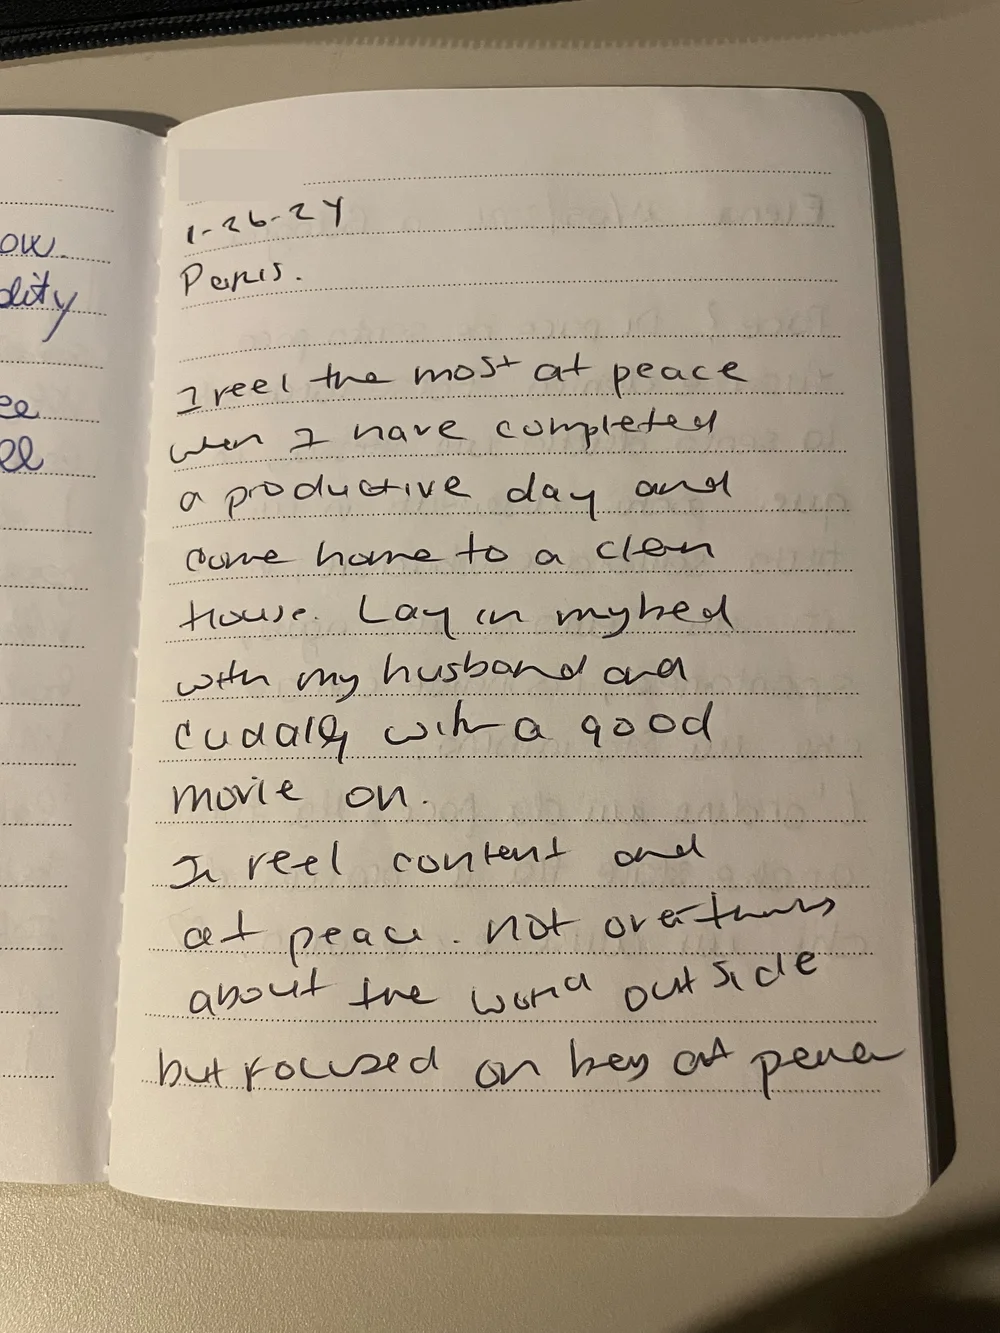 ow.
dity
ee
ee
1-26-24
Paris.
I feel the most at peace
when I have completed
a productive day and
come home to a clean
house. Lay in my bed
with my husband and
cuddle with a good
movie on.
I feel content and
at peace. not overthink
about the world outside
but focused on being at peace